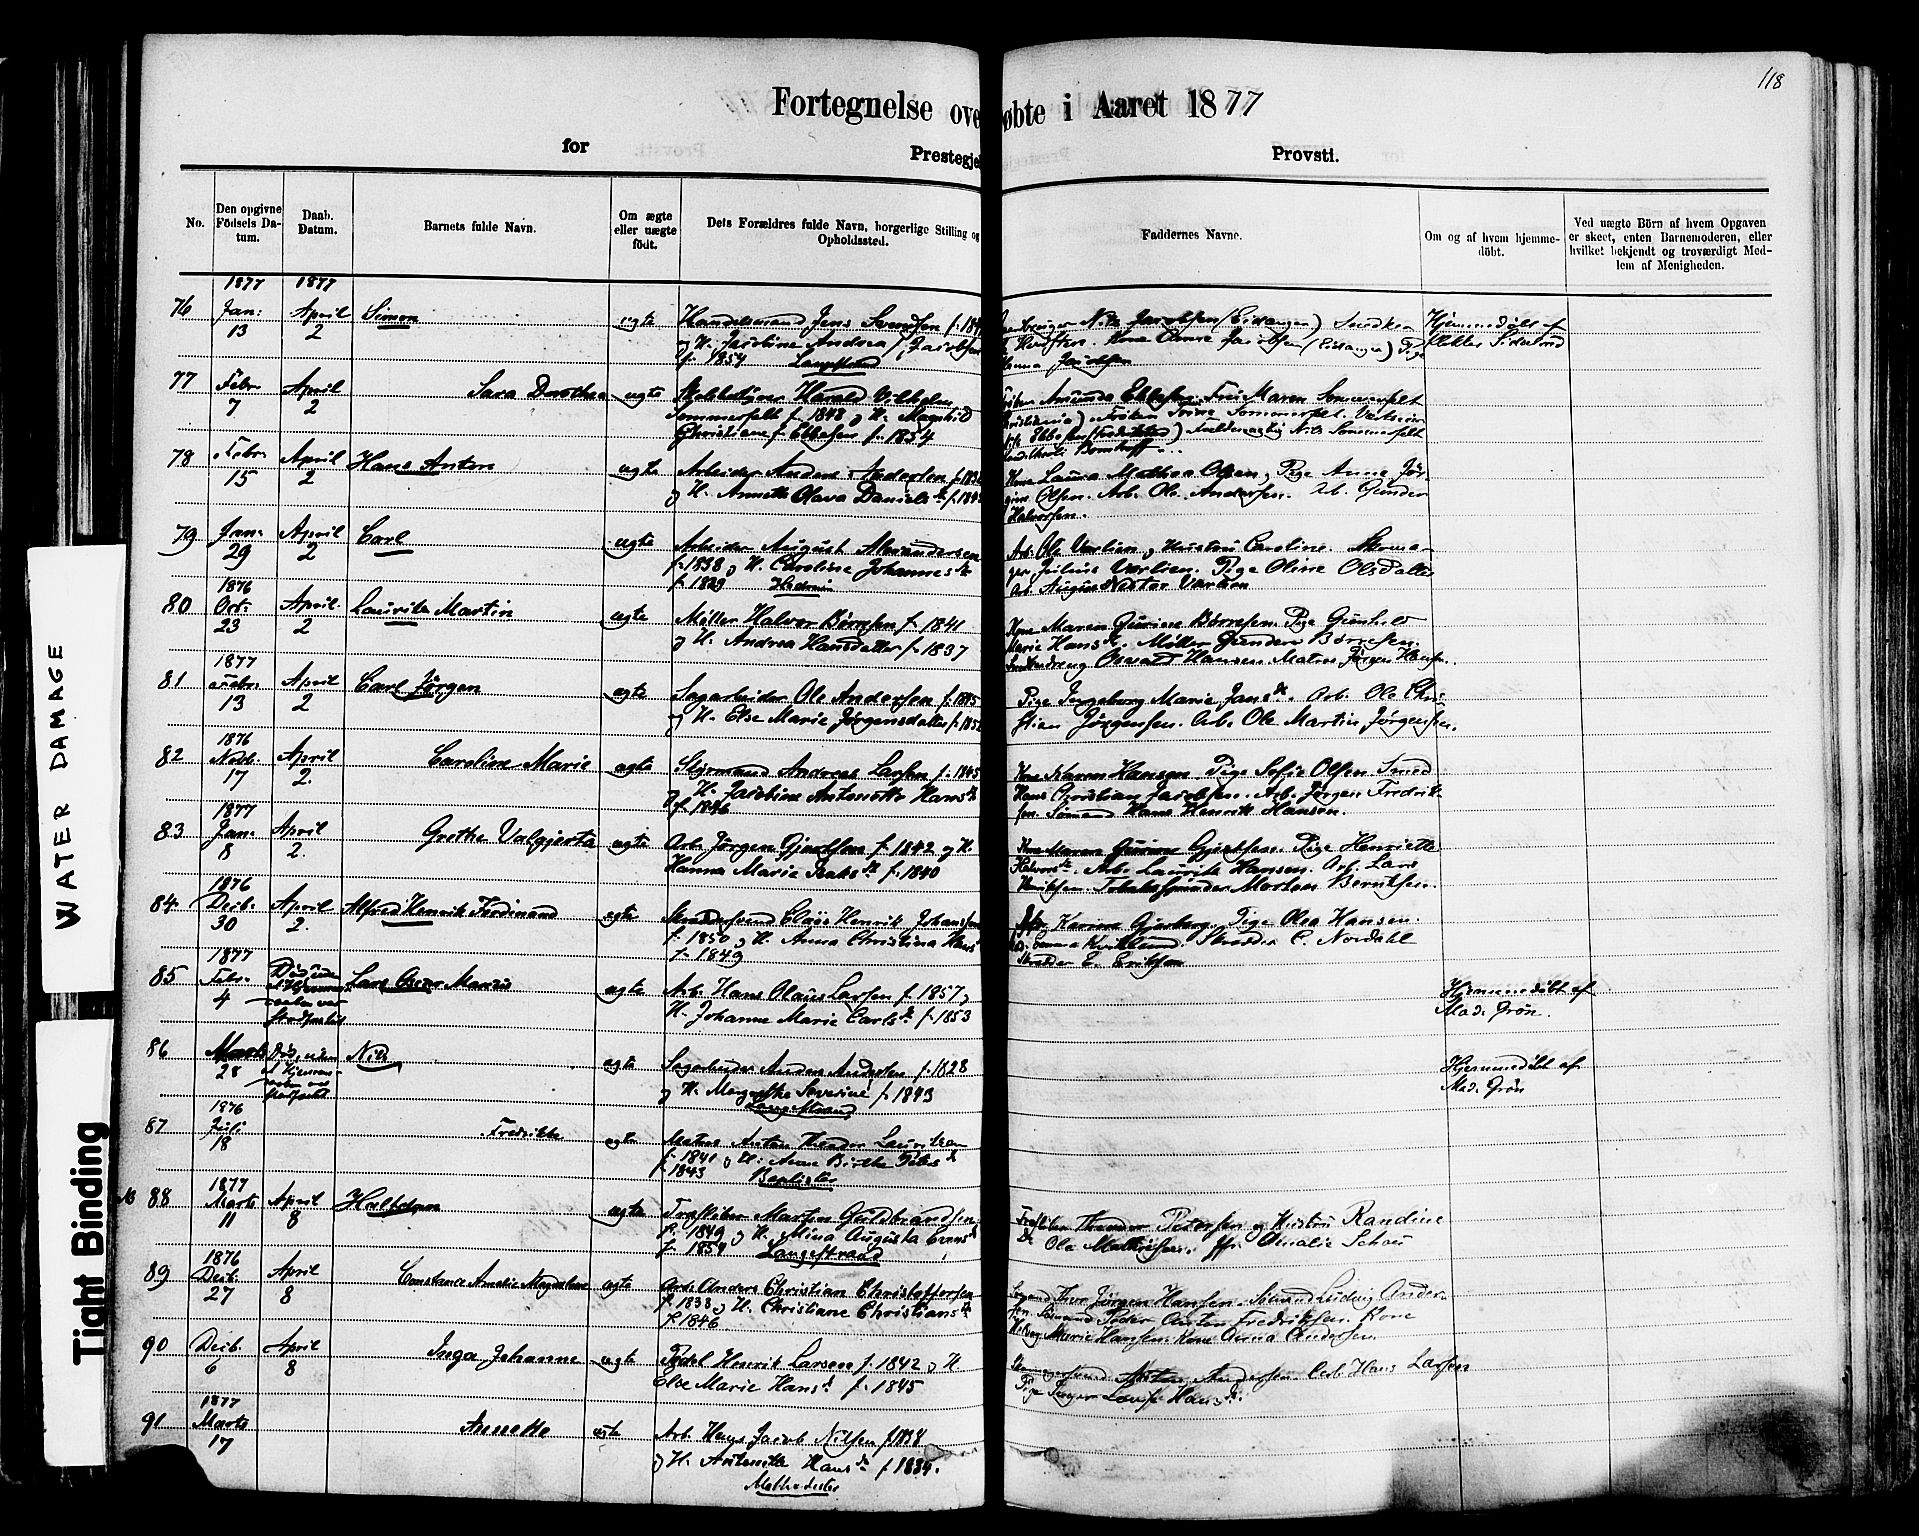 118
Fortegnelse ove øbte i Aaret 1877
for Prestegje Provsti.
No.
Den opgivne Födsels Datum.
Daab. Datum.
Barnets fulde Navn.
Om ægte eller uægte födt.
Dets Forældres fulde Navn, borgerlige Stilling og Opholdssted.
Faddernes Navne.
Om og af hvem hjemmedöbt.
Ved uægte Börn af hvem Opgaven er skeet, enten Barnemoderen, eller hvilket bekjendt og troværdigt Medlem af Menigheden.
1877 1877
76 Jan: 13 April 2 Simon ægte Handelsmand Jens
og H. Jacobine Andrea Jacobsen
f. 1854 Langestrand
Nils Jacobsen (Eidanger) Snedker
Kone Jacobsen (Eidanger) Pige
Hanna Jacobsen
Hjemmedöbt af
77 Febr. 7 April 2 Sara Dorothea ægte Harald Vilhelm
Sommerfelt f. 1848 og H. Magnhild
Christiane f. Ebbesen f. 1854
Ebbesen. Fru Maren Sommerfelt
Nils Sommerfelt
78 Febr. 15 April 2 Hans Anton ægte Arbeider Anders Andersen
og H. Annette Olava Daniels dr
Kone Laura Mathea Olsen, Pige Anne Jør
gine Olsen. Arb. Ole Andersen. Arb. Gunder
Halvorsen.
79 Jan: 29 April 2 Carl ægte Arbeider August Alexandersen
f. 1838 og H. Caroline Johannes dr
Arb. Ole Varlien og Hustru Caroline.
Julius Varlien. Pige Oline Olsdatter
Arb. August Nestor Varlien
1876
80 Oct. 23 April 2 Lauritz Martin ægte Møller Halvor Børresen f. 1841
og H. Andrea Hansdatter f. 1837
Kone Maren Gurine Børresen. Pige Gunhild
Marie Hans dr. Møller Gunder Børresen.
Osvald Hansen. Matros Jørgen Hansen.
1877
81 Febr. 13 April 2 Carl Jørgen ægte Sagarbeider Ole Andersen
og H. Else Marie Jørgensdatter
Pige Ingeborg Marie Jans dr. Arb. Ole Chri
stian Jørgensen. Arb. Ole Martin Jørgensen.
1876
82 Novb. 17 April 2. Caroline Marie ægte Styrmand Andreas Larsen f. 1845
og H. Jacobine Antonette Hans dr
f. 1846
Kone Karen Hansen. Pige Sofie Olsen. Smed
Hans Christian Jacobsen. Arb. Jørgen Fredrik
sen. Sømand Hans Henrik Hansen.
1877
83 Jan: 8 April 2. Grethe Valgjerta ægte Arb. Jørgen Gjertsen f. 1842 og H.
Hanna Marie Isaks dr f. 1840
Kone Maren Gurine Gjertsen. Pige Henriette
Halvors dr. Arb. Lauritz Hansen. Arb. Lars
Henriksen. Morten Berntsen.
1876
84 Decb. 30 April 2. Alfred Henrik Ferdinand ægte Skræddersvend Claus Henrik Johansen
f. 1850 og H. Anna Christina Hans dr
f. 1849
Karine Gjerberg. Pige Olea Hansen.
Skrædder C. Nordahl
Skrædder E. Eriksen
1877
85 Febr. 4 Død, uden Lars Oscar Marius ægte Arb. Hans Olaus Larsen f. 1857 og
H. Johanne Marie Carls dr f. 1853
Hjemmedöbt af
Mad. Grön.
86 Marts 28 Død, uden Nils ægte Sagarbeider Anders Andersen f. 1828
og H. Margrethe Severine f. 1843
Langestrand
Hjemmedöbt af
Mad. Grön.
1876
87 Juli 18 Fredrikke ægte Matros Anton Theodor Lauritzen
f. 1841 og H. Anne Birthe Peters dr
f. 1843 Baptister
1877
88 Marts 11 April 8 Halfdan ægte Martin Guldbrandsen
f. 1849 og H. Mina Augusta Evens dr
f. 1854 Langestrand
Pedersen og Hustru Randine
Ole Mathisen. Amalie
1876
89 Decb. 27 April 8 Constance Amalie Magdalene ægte Arb. Anders Christian Christoffersen
f. 1833 og H. Christiane Christians dr
f. 1846
Thor Jørgen Hansen. Sømand Ludvig Ander
sen. Sømand Peder Anton Fredriksen. Kone
Marie Hansen. Kone Anna Andersen.
90 Decb. 6 April 8 Inga Johanne ægte Henrik Larsen f. 1842 og H.
Else Marie Hans dr f. 1845
Anton Andersen. Arb. Hans Larsen
Pige Louise Hans dr.
1877
91 Marts 17 Annette ægte Arb. Hans Jacob Nilsen f. 1838
og H. Antonette Hans dr f. 1834.
Methodister
WATER DAMAGE
Tight Binding